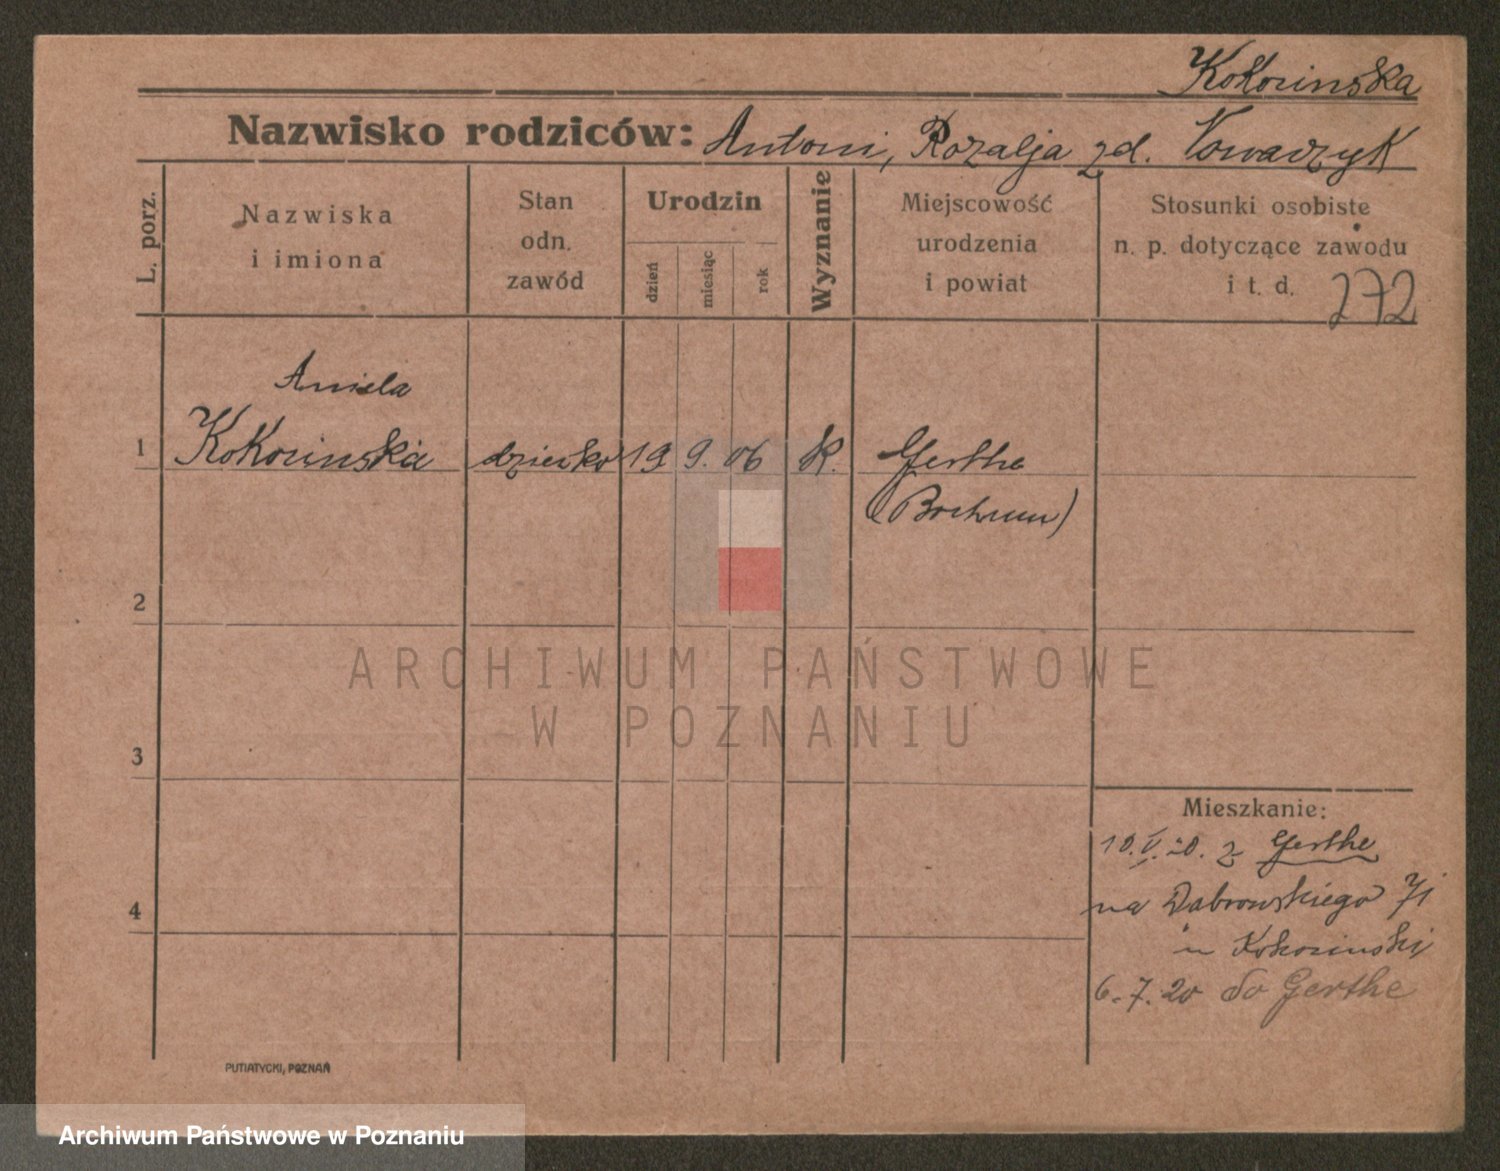 Kokocinska
Nazwisko rodziców: Antoni, Rozalja zd. Nowaczyk
L. porz.
Nazwiska
i imiona
Stan
odn.
zawód
Urodzin
dzień
miesiąc
rok
Wyznanie
Miejscowość
urodzenia
i powiat
Stosunki osobiste
n. p. dotyczące zawodu
i t. d. 272
Aniela
1 Kokocinska dziecko 19 9. 06 k. Gerthe
(Bochum)
2
ARCHIWUM PAŃSTWOWE
W POZNANIU
3
Mieszkanie:
10.V.20. z Gerthe
4
na Dabrowskiego 71
u Kokocinski
6.7.20 do Gerthe
PUTIATYCKI, POZNAŃ
Archiwum Państwowe w Poznaniu